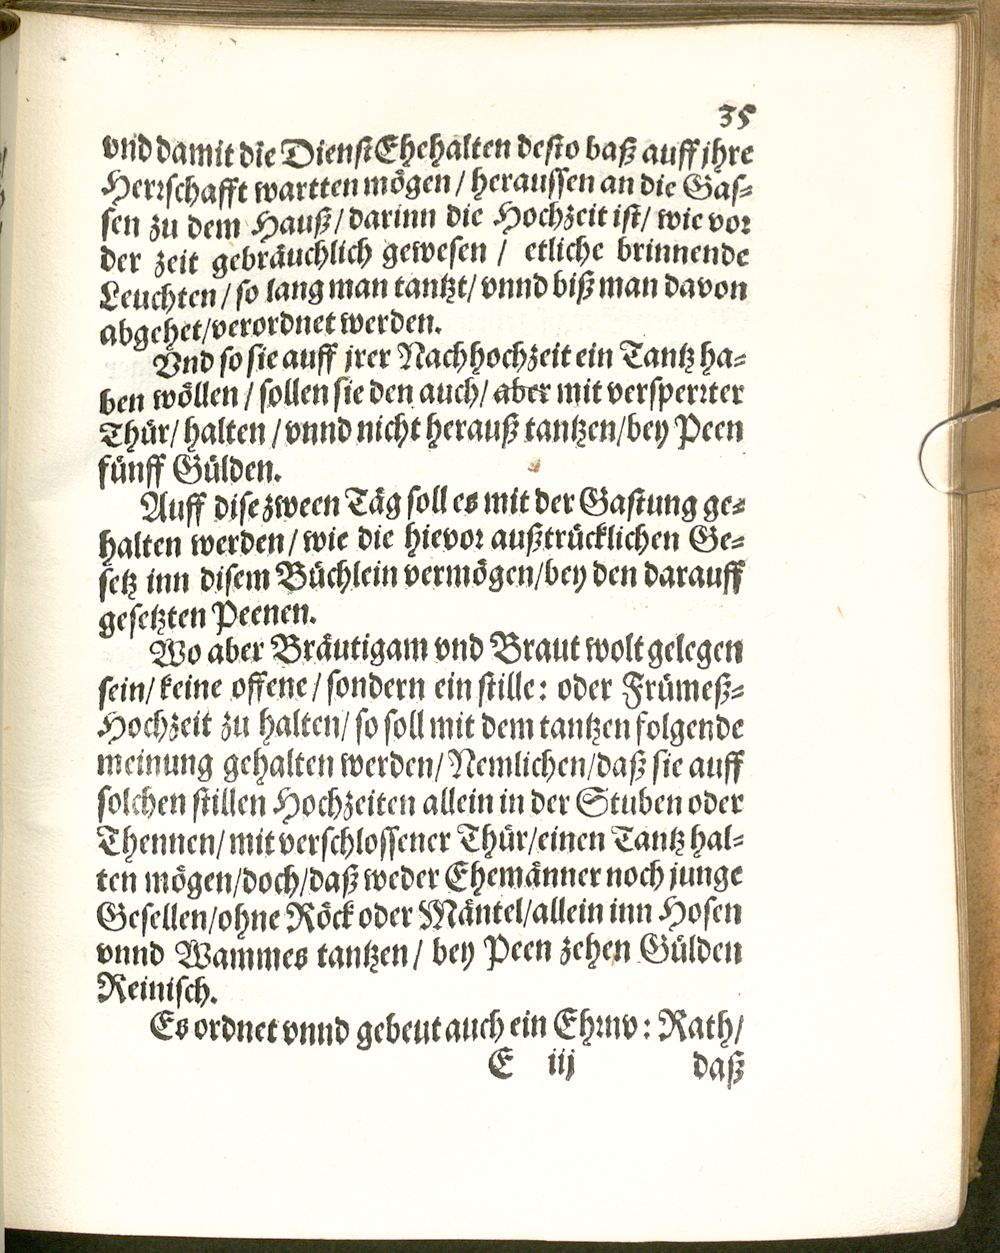 35
vnd damit die DienstEhehalten desto baß auff jhre
Herrschafft wartten mögen / heraussen an die Gas-
sen zu dem Hauß / darinn die Hochzeit ist / wie vor
der zeit gebräuchlich gewesen / etliche brinnende
Leuchten / so lang man tantzt / vnnd biß man davon
abgehet / verordnet werden.
Vnd so sie auff jrer Nachhochzeit ein Tantz ha-
ben wöllen / sollen sie den auch / aber mit versperrter
Thür / halten / vnnd nicht herauß tantzen / bey Peen
fünff Gülden.
Auff dise zween Täg soll es mit der Gastung ge-
halten werden / wie die hievor außtrücklichen Ge-
setz inn disem Büchlein vermögen / bey den darauff
gesetzten Peenen.
Wo aber Bräutigam vnd Braut wolt gelegen
sein / keine offene / sondern ein stille: oder Frümeß-
Hochzeit zu halten / so soll mit dem tantzen folgende
meinung gehalten werden / Nemlichen / daß sie auff
solchen stillen Hochzeiten allein in der Stuben oder
Thennen / mit verschlossener Thür / einen Tantz hal-
ten mögen / doch / daß weder Ehemänner noch junge
Gesellen / ohne Röck oder Mäntel / allein inn Hosen
vnnd Wammes tantzen / bey Peen zehen Gülden
Reinisch.
Es ordnet vnnd gebeut auch ein Ehrnv: Rath /
E iij daß